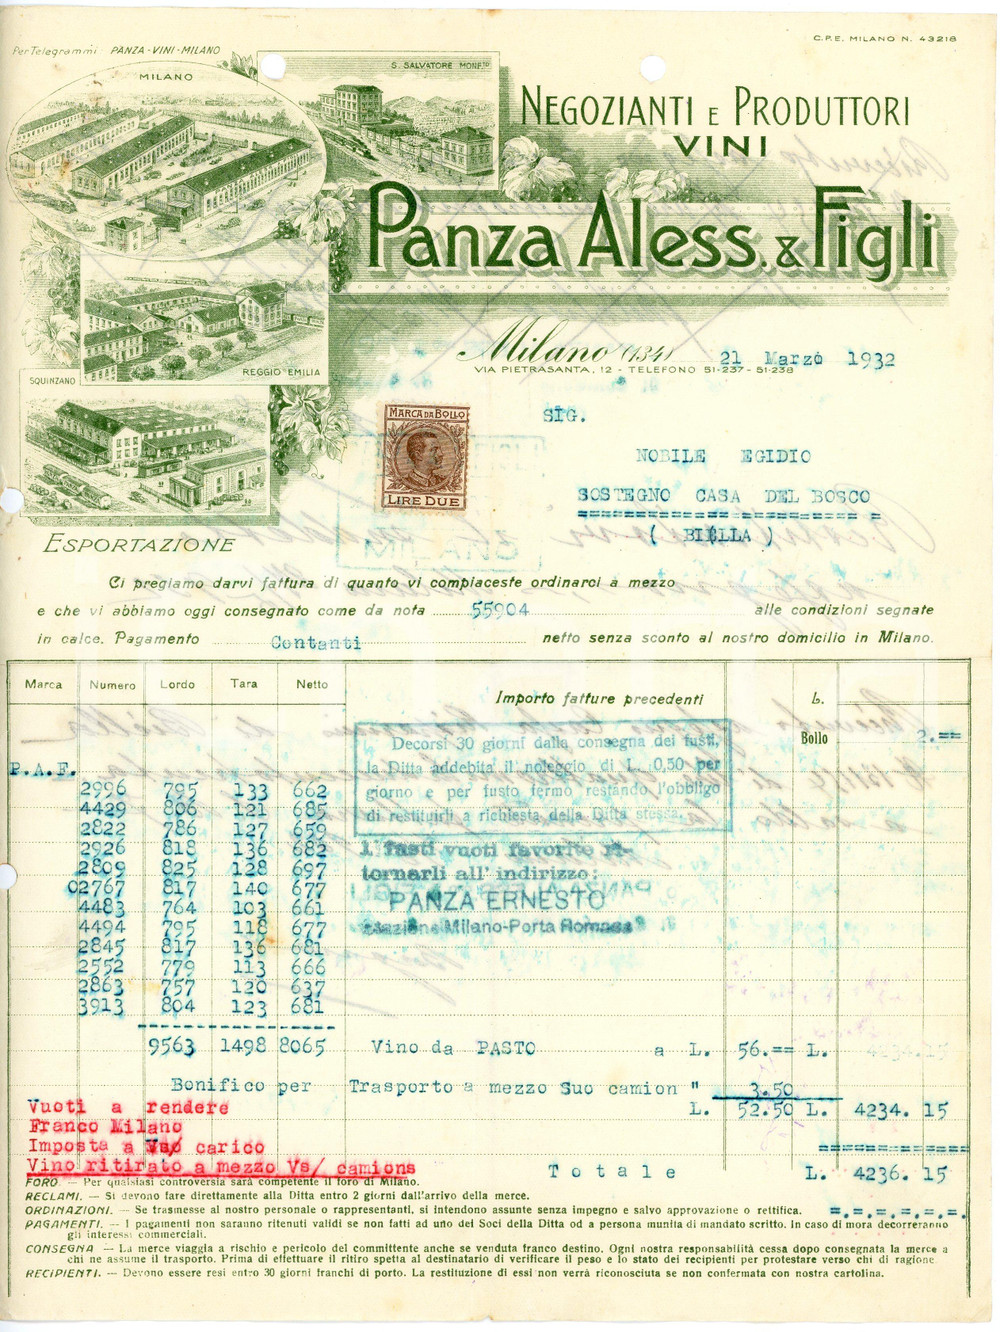 Per Telegrammi PANZA - VINI - MILANO
C.P.E. MILANO N. 43218
MILANO
S. SALVATORE MONF.TO
REGGIO EMILIA
SQUINZANO
NEGOZIANTI E PRODUTTORI
VINI
Panza Aless. & Figli
Milano (134) 21 Marzo 1932
VIA PIETRASANTA, 12 - TELEFONO 51-237 - 51-238
MARCA DA BOLLO
LIRE DUE
SIG.
NOBILE EGIDIO
SOSTEGNO CASA DEL BOSCO
==========================
( BIELLA )
ESPORTAZIONE
Ci pregiamo darvi fattura di quanto vi compiaceste ordinarci a mezzo
e che vi abbiamo oggi consegnato come da nota 55904 alle condizioni segnate
in calce. Pagamento Contanti netto senza sconto al nostro domicilio in Milano.
Marca Numero Lordo Tara Netto Importo fatture precedenti L.
Bollo 2.==
Decorsi 30 giorni dalla consegna dei fusti,
la Ditta addebita il noleggio di L. 0,50 per
giorno e per fusto fermo restando l'obbligo
di restituirli a richiesta della Ditta stessa.
P.A.F.
2996 795 133 662
4429 806 121 685
2822 786 127 659
2926 818 136 682
2809 825 128 697
02767 817 140 677
4483 764 103 661
4494 795 118 677
2845 817 136 681
2552 779 113 666
2863 757 120 637
3913 804 123 681
I fusti vuoti favorite ri-
tornarli all' indirizzo:
PANZA ERNESTO
Stazione Milano-Porta Romana
9563 1498 8065 Vino da PASTO a L. 56.== L. 4234.15
Bonifico per Trasporto a mezzo Suo camion " 3.50
L. 52.50 L. 4234. 15
Vuoti a rendere
Franco Milano
Imposta a Vs/ carico
Vino ritirato a mezzo Vs/ camions
Totale L. 4236. 15
FORO. — Per qualsiasi controversia sarà competente il foro di Milano.
RECLAMI. — Si devono fare direttamente alla Ditta entro 2 giorni dall'arrivo della merce.
ORDINAZIONI. — Se trasmesse al nostro personale o rappresentanti, si intendono assunte senza impegno e salvo approvazione o rettifica.
PAGAMENTI. — I pagamenti non saranno ritenuti validi se non fatti ad uno dei Soci della Ditta od a persona munita di mandato scritto. In caso di mora decorreranno
gli interessi commerciali.
CONSEGNA — La merce viaggia a rischio e pericolo del committente anche se venduta franco destino. Ogni nostra responsabilità cessa dopo consegnata la merce a
chi ne assume il trasporto. Prima di effettuare il ritiro spetta al destinatario di verificare il peso e lo stato dei recipienti per protestare verso chi di ragione
RECIPIENTI. — Devono essere resi entro 30 giorni franchi di porto. La restituzione di essi non verrà riconosciuta se non confermata con nostra cartolina.